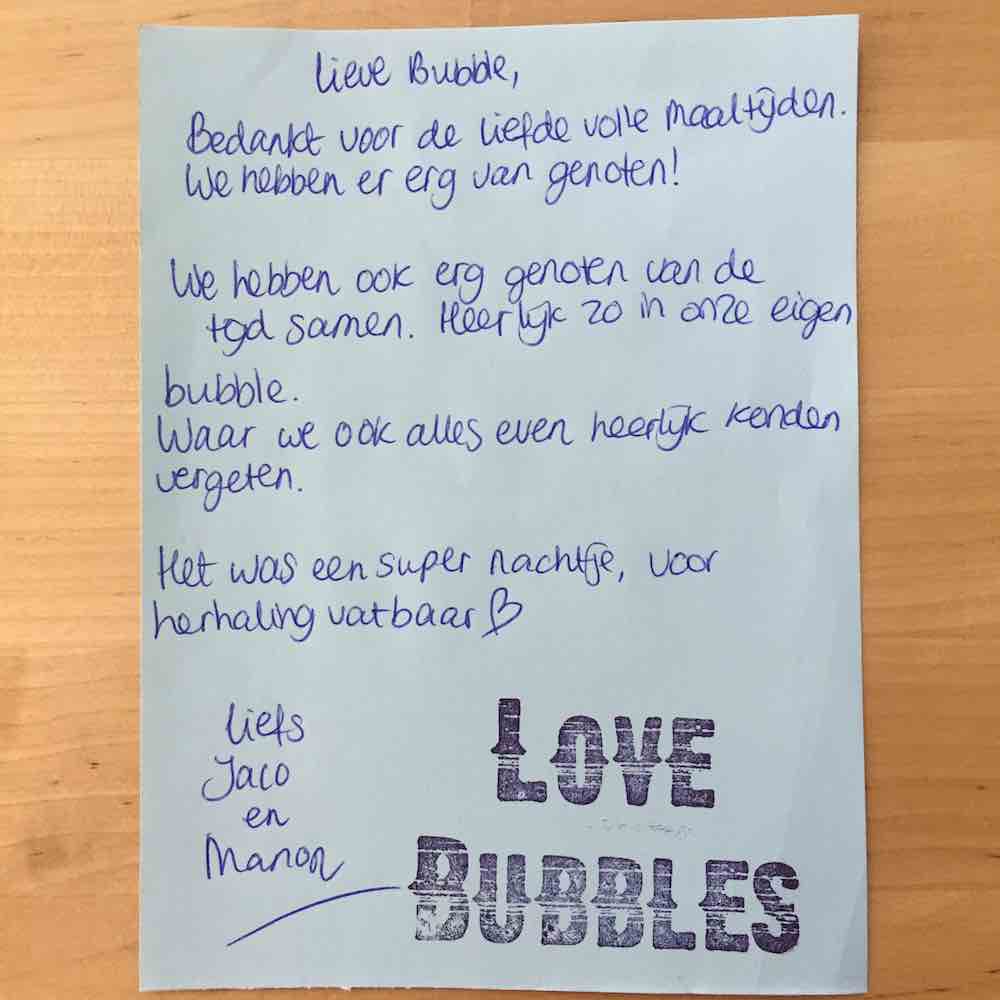 Lieve Bubble,
Bedankt voor de liefde volle maaltijden.
We hebben er erg van genoten!
We hebben ook erg genoten van de
tijd samen. Heerlijk zo in onze eigen
bubble.
Waar we ook alles even heerlijk konden
vergeten.
Het was een super nachtje, voor
herhaling vatbaar
Liefs
Jaco
en
Manon
LOVE
BUBBLES